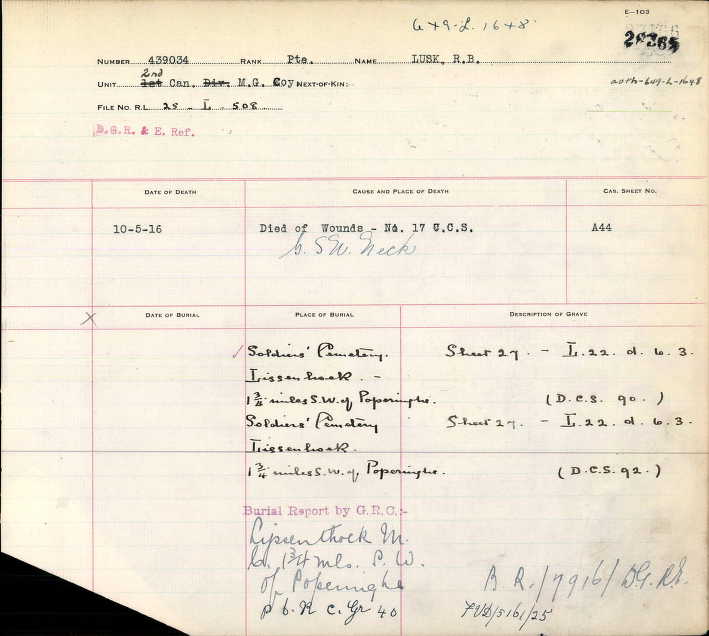 E-103
649-L-1648
28365
NUMBER 439034 RANK Pte. NAME LUSK, R.B.
2nd
UNIT 1st Can. Div. M.G. Coy NEXT-OF-KIN:-
auth-649-L-1648
FILE NO. R.L. 25 - L - 508
D.G.R. & E. Ref.
DATE OF DEATH CAUSE AND PLACE OF DEATH CAS. SHEET NO.
10-5-16 Died of Wounds - No. 17 C.C.S. A44
G.S.W. Neck
X DATE OF BURIAL PLACE OF BURIAL DESCRIPTION OF GRAVE
Soldiers' Cemetery. Sheet 27. - L. 22. d. 6. 3.
Lissenhoek. -
1 3/4 miles S.W. of Poperinghe. (D.C.S. 90.)
Soldiers' Cemetery Sheet 27. - L. 22. d. 6. 3.
Lissenhoek.
1 3/4 miles S.W. of Poperinghe. (D.C.S. 92.)
Burial Report by G.R.C.:-
Lijssenthoek M.
1 3/4 mls. S. W.
of Poperinghe
p 6. R c. Gr 40
B R./7916/ D.G.R.E.
/5161/25